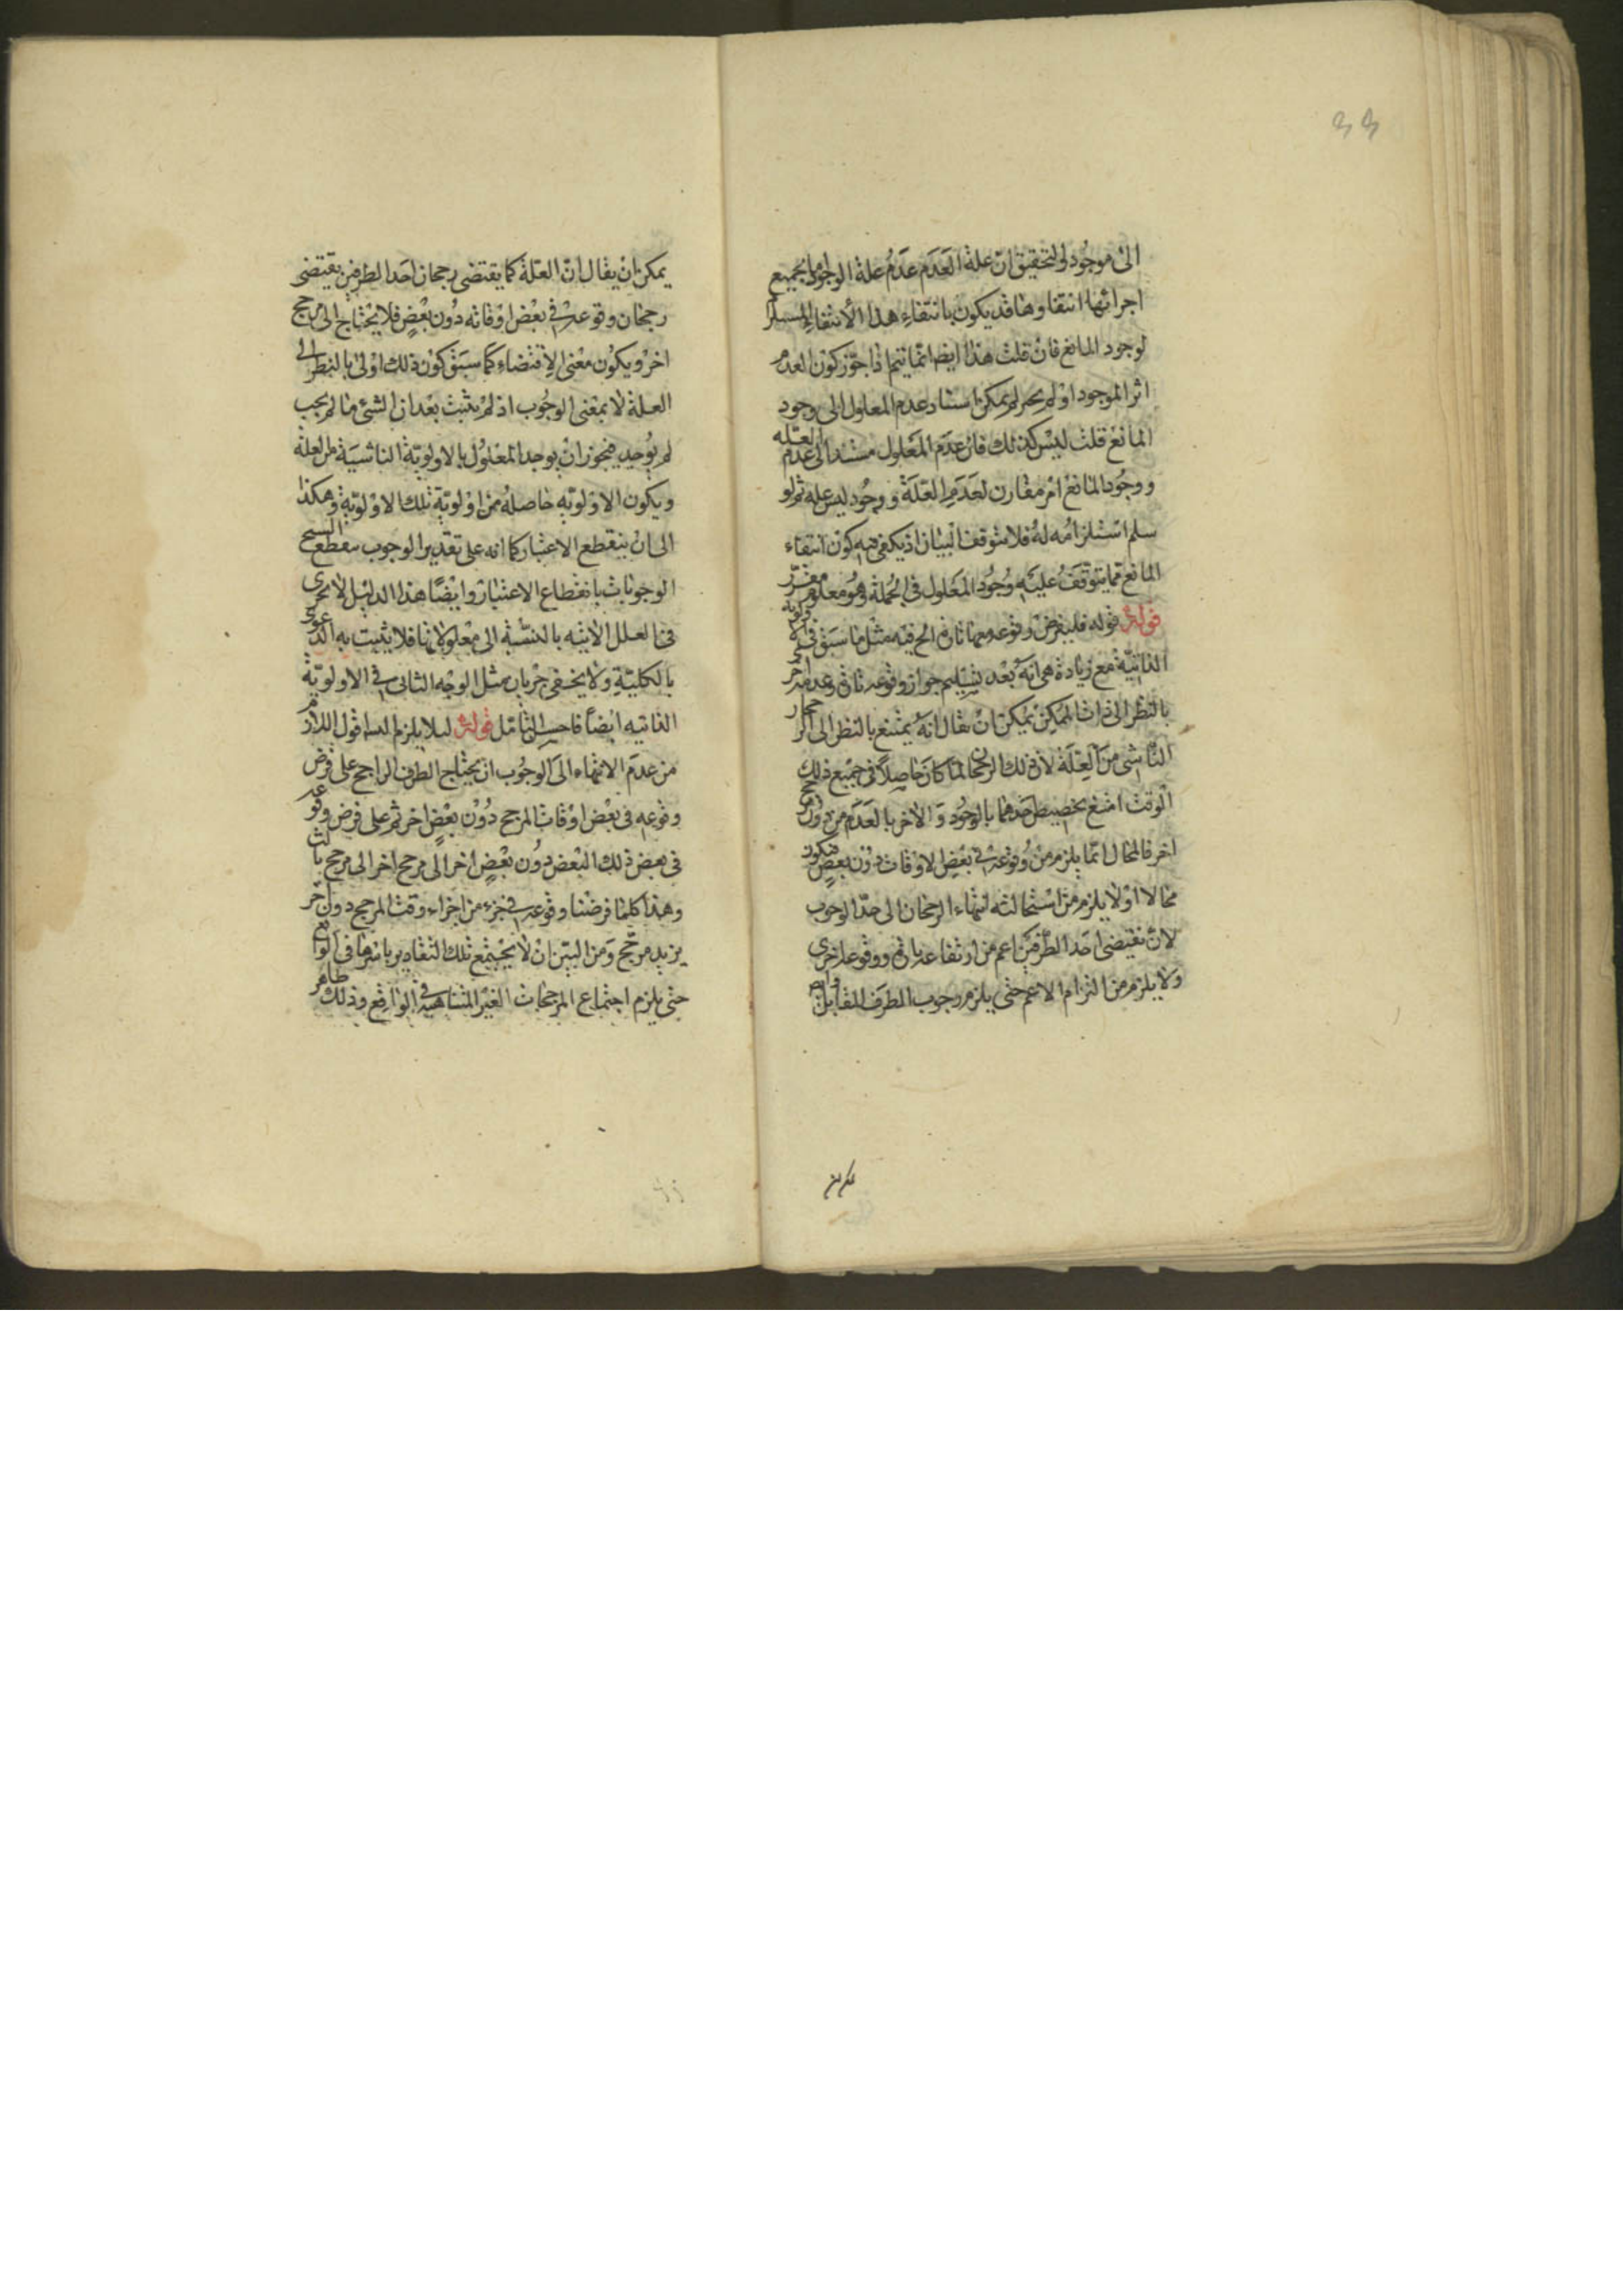 الى موجود والتحقيق ان علة العدم عدم علة الوجود اما بجميع
اجزائها انتفاؤها قد يكون بانتفاء هذا الانتفاء المستلزم
لوجود المانع فان قلت هذا ايضا انما يتم اذا جوز كون العدم
اثر الموجود اذ لو لم يجز لم يمكن استناد عدم المعلول الى وجود
المانع قلت ليس كذلك فان عدم المعلول مستند الى عدم العلة
ووجود المانع امر مقارن لعدم العلة ووجود ليس علة ثم لو
سلم استلزامه له فلا يتوقف البيان اذ يكفى فيه كون انتفاء
المانع مما يتوقف عليه وجود المعلول فى الجملة وهو معلوم مقرر
قوله قوله فليفرض وقوعه معها تارة الخ فيه مثل ما سبق فى الاولوية
الذاتية مع زيادة هى انه بعد تسليم جواز وقوعه تارة وعدمه اخرى
بالنظر الى ذات الممكن يمكن ان يقال انه يمتنع بالنظر الى الرجحان
الناشى من العلة لان ذلك الرجحان لما كان حاصلا فى جميع ذلك
الوقت امتنع تخصيص احدهما بالوجود والاخر بالعدم من دون مرجح
اخر فالمحال انما يلزم من وقوعه فى بعض الاوقات دون بعض فيكون
محالا اولا يلزم من استحالته انتهاء الرجحان الى حد الوجوب
لان نقيضى احد الطرفين اعم من ارتفاعه تارة ووقوعه اخرى
ولا يلزم من التزام الاعم حتى يلزم وجوب الطرف المقابل
يمكن ان يقال ان العلة كما يقتضى رجحان احد الطرفين يقتضى
رجحان وقوعه فى بعض اوقاته دون بعض فلا يحتاج الى مرجح
اخر ويكون معنى الاقتضاء كما سبق كون ذلك اولى بالنظر الى
العلة لا بمعنى الوجوب اذ لم يثبت بعد ان الشئ ما لم يجب
لم يوجد فيجوز ان يوجد المعلول بالاولوية الناشية من العلة
ويكون الاولوية حاصلة من اولوية تلك الاولوية وهكذا
الى ان ينقطع الاعتبار كما انه على تقدير الوجوب ينقطع
الوجوبات بانقطاع الاعتبار وايضا هذا الدليل لا يجرى
فى العلل الانية بالنسبة الى معلولاتها فلا يثبت به الدعوى
بالكلية ولا يخفى جريان مثل الوجه الثانى فى الاولوية
الذاتية ايضا فاحسن التأمل قوله لئلا يلزم اقول اللازم
من عدم الانتهاء الى الوجوب ان يحتاج الطرف الراجح على فرض
وقوعه فى بعض اوقات المرجح دون بعض اخر ثم على فرض وقوعه
فى بعض ذلك البعض دون بعض اخر الى مرجح اخر الى مرجح ثالث
وهذا كلما فرضنا وقوعه فى جزء من اجزاء وقت المرجح دون اخر
يزيد مرجح ومن البين ان لا يجتمع تلك التقادير باسرها فى الواقع
حتى يلزم اجتماع المرجحات الغير المتناهية فى الواقع وذلك ظاهر